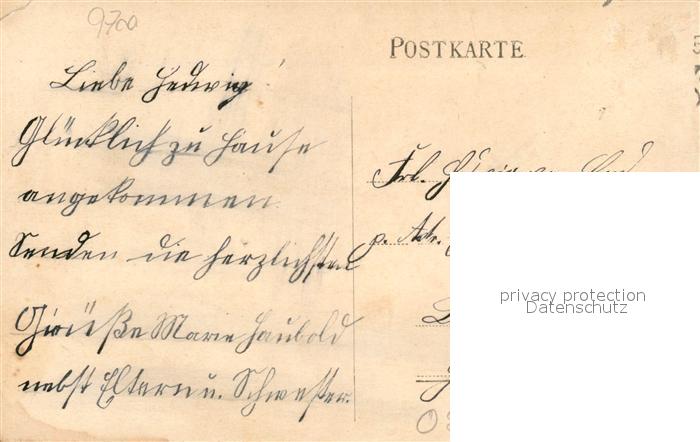 9700
POSTKARTE
Liebe Hedwig!
Glücklich zu Hause
angekommen
Senden die herzlichsten
Grüße Marie Haubold
nebst Eltern u. Schwester.
Frl.
p. Adr.
privacy protection
Datenschutz